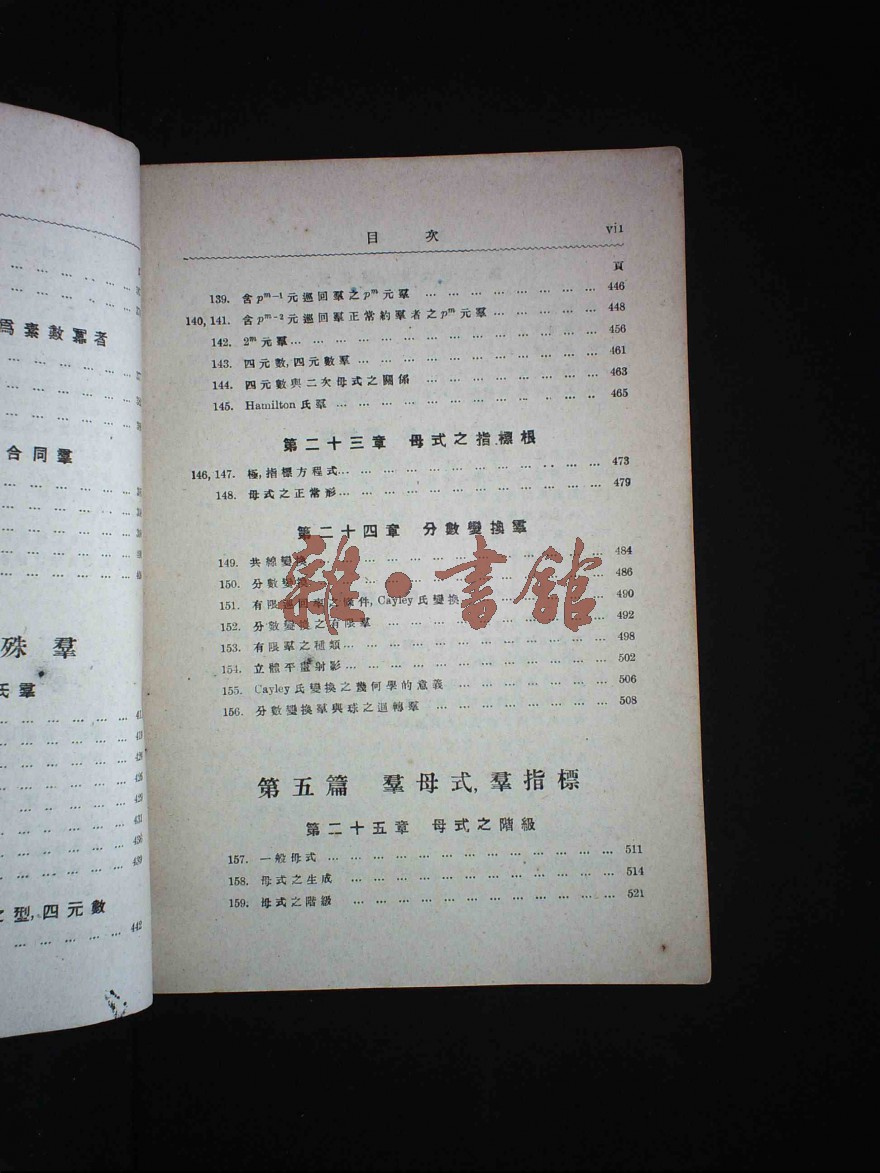 爲素數冪者
合同羣
殊羣
氏羣
之型,四元數
442
目 次 vii
頁
139. 含pᵐ⁻¹元巡回羣之pᵐ元羣 … 446
140, 141. 含pᵐ⁻²元巡回羣正常約羣者之pᵐ元羣 … 448
142. 2ᵐ元羣 … 456
143. 四元數,四元數羣 … 461
144. 四元數與二次母式之關係 … 463
145. Hamilton氏羣 … 465
第二十三章 母式之指標根
146, 147. 極,指標方程式 … 473
148. 母式之正常形 … 479
第二十四章 分數變換羣
149. 共線變換 … 484
150. 分數變換 … 486
151. 有限巡回羣之條件, Cayley氏變換 … 490
152. 分數變換之有限羣 … 492
153. 有限羣之種類 … 498
154. 立體平畫射影 … 502
155. Cayley氏變換之幾何學的意義 … 506
156. 分數變換羣與球之迴轉羣 … 508
第五篇 羣母式,羣指標
第二十五章 母式之階級
157. 一般母式 … 511
158. 母式之生成 … 514
159. 母式之階級 … 521
雜·書館